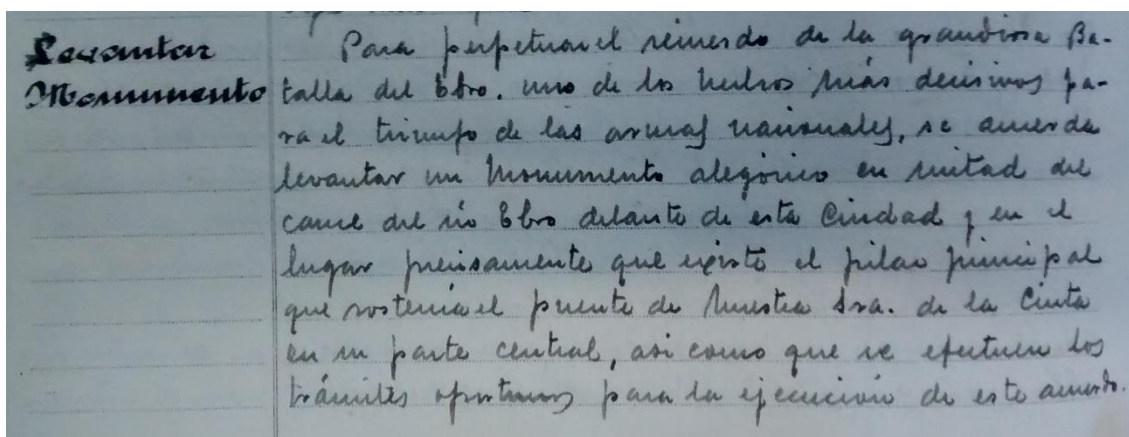 Levantar
Monumento
Para perpetuar el recuerdo de la grandiosa Ba-
talla del Ebro, uno de los hechos más decisivos pa-
ra el triunfo de las armas nacionales, se acuerda
levantar un Monumento alegórico en mitad del
cauce del río Ebro delante de esta Ciudad y en el
lugar precisamente que existe el pilar principal
que sostenia el puente de Nuestra Sra. de la Cinta
en su parte central, asi como que se efectuen los
trámites oportunos para la ejecución de este acuerdo.